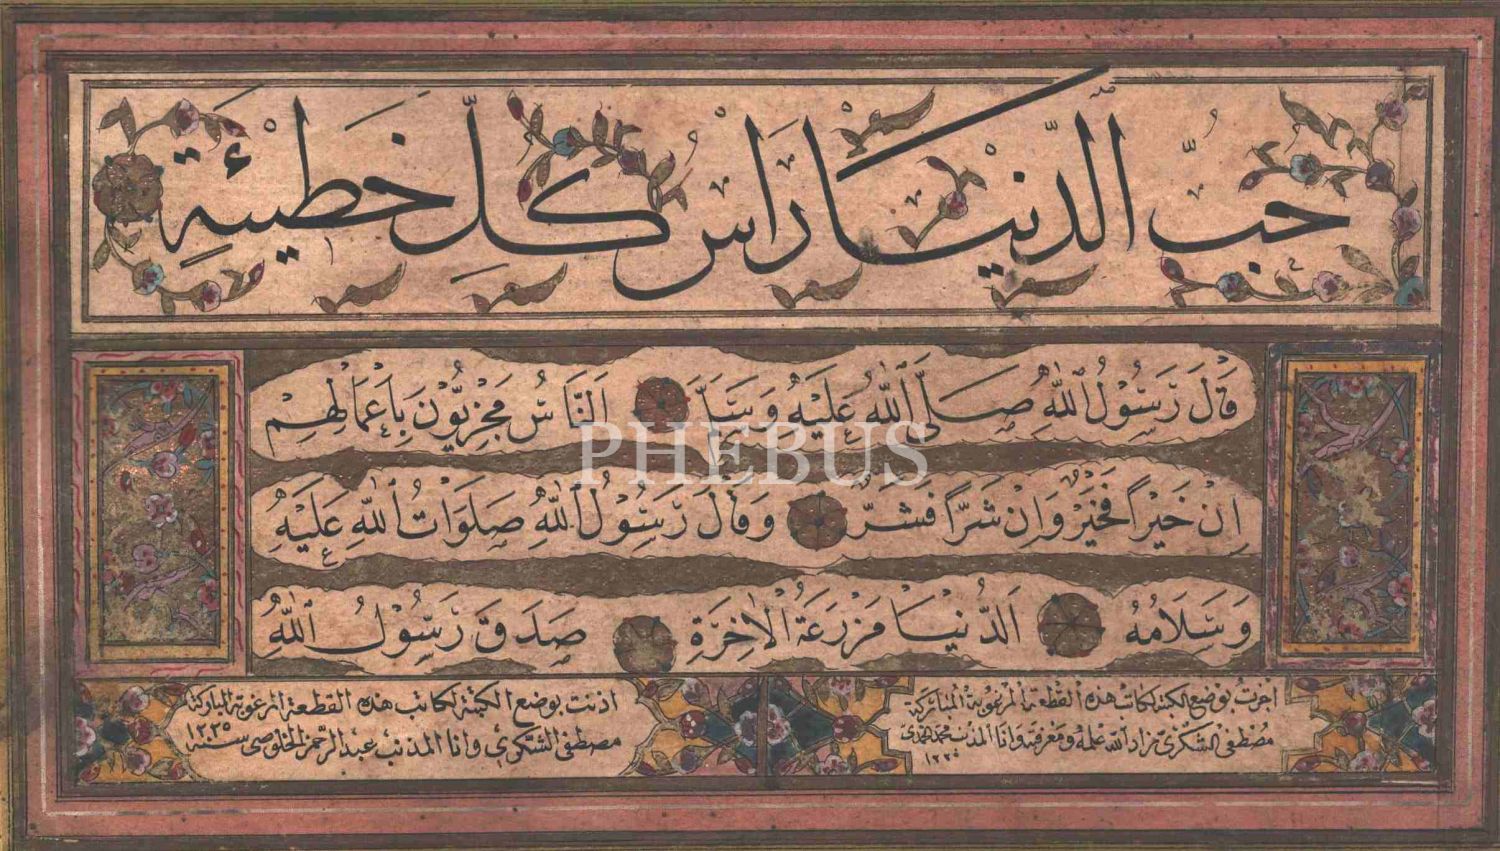 حُبُّ الدُّنْيَا رَاْسُ كُلِّ خَطِيْئَةٍ
قَالَ رَسُوْلُ اللّٰهِ صَلَّى اللّٰهُ عَلَيْهِ وَسَلَّمَ اَلنَّاسُ مَجْزِيُّوْنَ بِاَعْمَالِهِمْ
اِنْ خَيْرًا فَخَيْرٌ وَاِنْ شَرًّا فَشَرٌّ وَقَالَ رَسُوْلُ اللّٰهِ صَلَوَاتُ اللّٰهِ عَلَيْهِ
وَسَلَامُهُ اَلدُّنْيَا مَزْرَعَةُ الْاٰخِرَةِ صَدَقَ رَسُوْلُ اللّٰهِ
اجزت بوضع الكتبة لكاتب هذه القطعة المرغوبة
مصطفى الشكري زاد الله علمه ومعرفته وانا المذنب محمد
اذنت بوضع الكتبة لكاتب هذه القطعة المرغوبة المباركة
مصطفى الشكري وانا المذنب عبد الرحمن الخلوصي سنة ١٢٣٥
PHEBUS